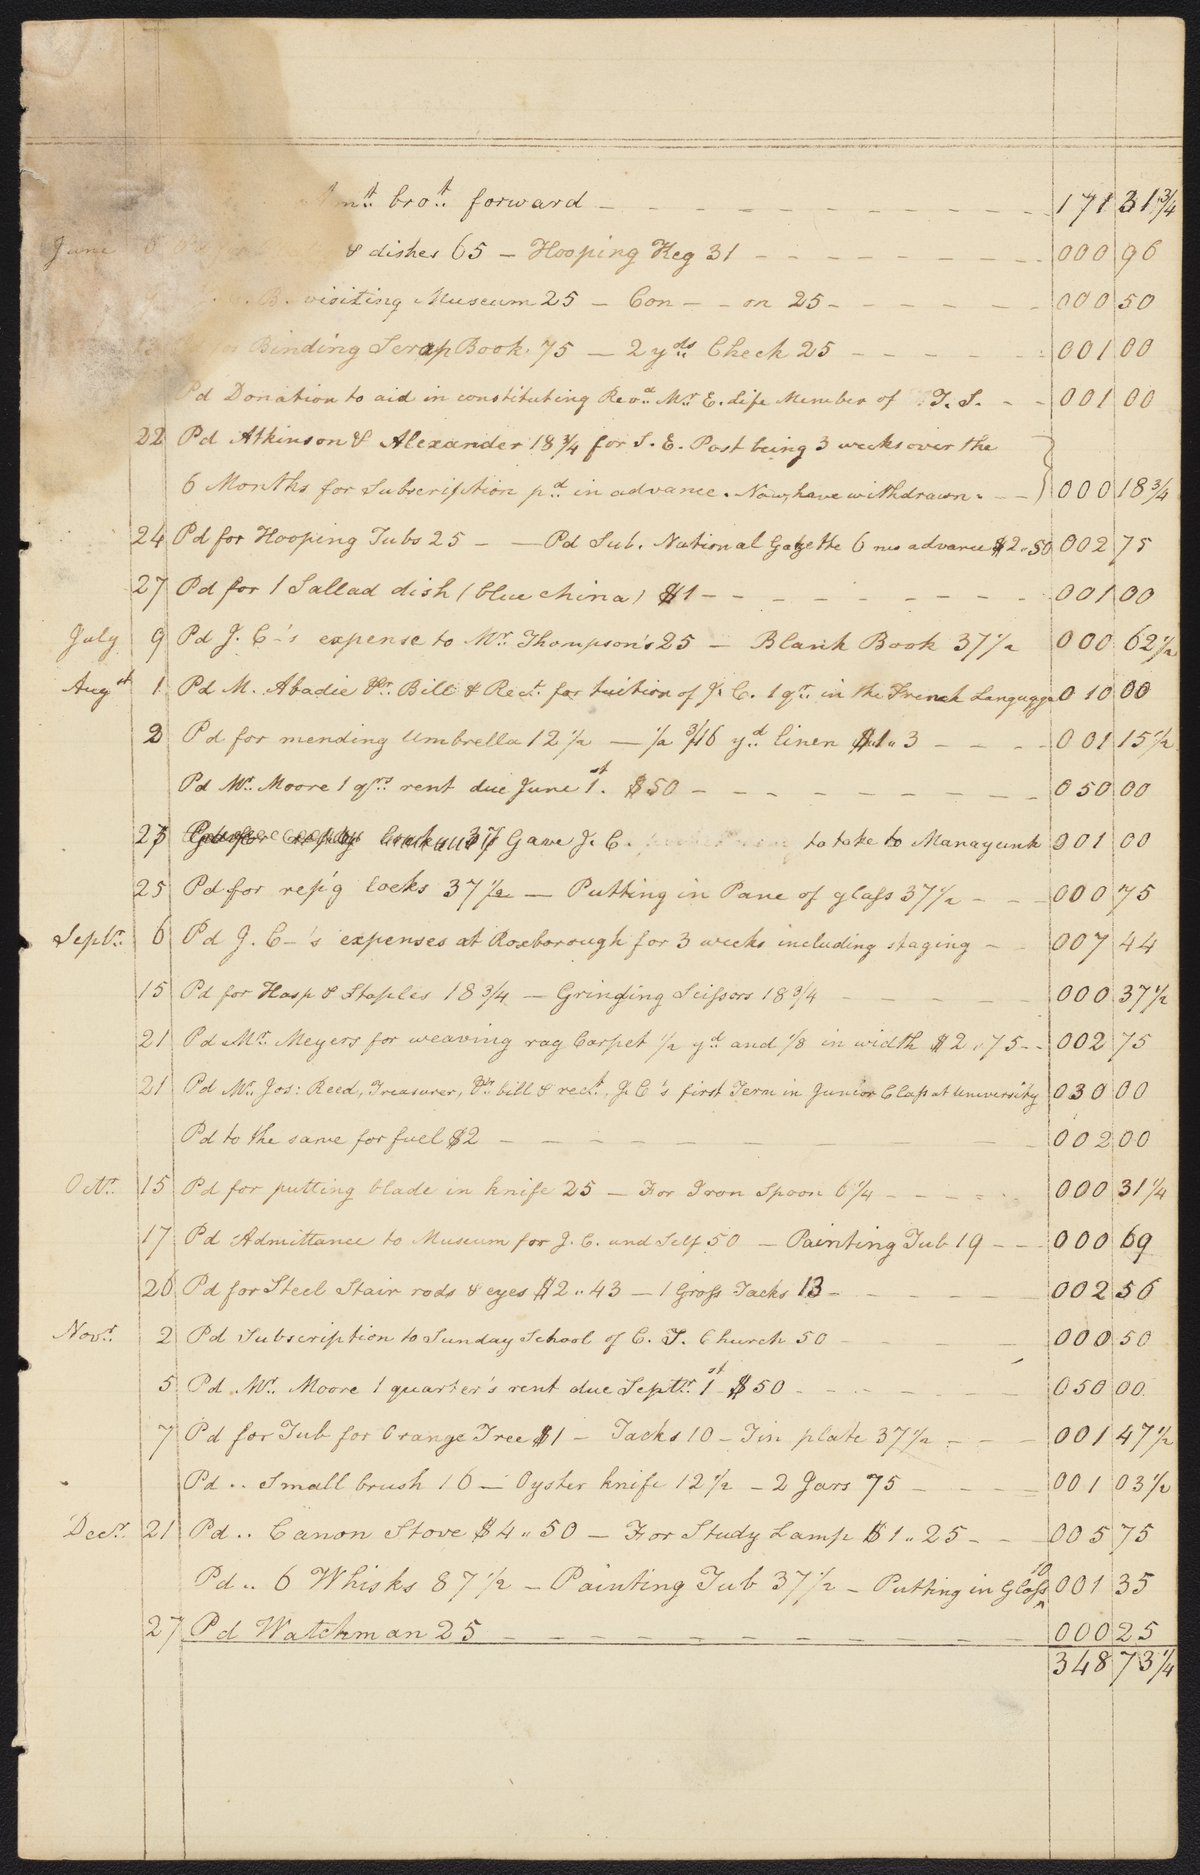 Amt. brot. forward 171 31 3/4
June & dishes 65 — Hooping Keg 31 000 96
B. visiting Museum 25 — Con — — on 25 000 50
for Binding Scrap Book 75 — 2 yds Check 25 001 00
Pd Donation to aid in constituting Revd. Mr. E. Life Member of T. S. 001 00
22 Pd Atkinson & Alexander 18 3/4 for S. E. Post being 3 weeks over the
6 Months for Subscription pd. in advance. Now have withdrawn. 000 18 3/4
24 Pd for Hooping Tubs 25 — — Pd Sub. National Gazette 6 mos advance $2..50 002 75
27 Pd for 1 Sallad dish (blue china) $1 001 00
July 9 Pd J. C—'s expense to Mr. Thompson's 25 — Blank Book 37 1/2 000 62 1/2
Augst 1 Pd M. Abadie Pr. Bill & Rect. for tuition of J. C. 1 qr. in the French Language 010 00
2 Pd for mending Umbrella 12 1/2 — 1/2 3/16 yd linen $1..3 001 15 1/2
Pd Mr. Moore 1 qrs rent due June 1st. $50 050 00
23 Gave J. C. to take to Manayunk 001 00
25 Pd for rep'g locks 37 1/2 — Putting in Pane of glass 37 1/2 000 75
Septr. 6 Pd J. C—'s expenses at Roxborough for 3 weeks including staging 007 44
15 Pd for Hasp & Staples 18 3/4 — Grinding Scissors 18 3/4 000 37 1/2
21 Pd Mr. Meyers for weaving rag Carpet 1/2 yd and 1/8 in width $2..75 002 75
21 Pd Mr. Jos: Reed, Treasurer, Pr. bill & rect. J. C's first Term in Junior Class at University 030 00
Pd to the same for fuel $2 002 00
Octr. 15 Pd for putting blade in knife 25 — For Iron Spoon 6 1/4 000 31 1/4
17 Pd Admittance to Museum for J. C. and Self 50 — Painting Tub 19 000 69
26 Pd for Steel Stair rods & eyes $2..43 — 1 Gross Tacks 13 002 56
Novr. 2 Pd Subscription to Sunday School of C. T. Church 50 000 50
5 Pd Mr. Moore 1 quarter's rent due Septr 1st $50 050 00
7 Pd for Tub for Orange Tree $1 — Tacks 10 — Tin plate 37 1/2 001 47 1/2
Pd .. Small brush 16 — Oyster knife 12 1/2 — 2 Jars 75 001 03 1/2
Decr. 21 Pd .. Canon Stove $4..50 — For Study Lamp $1..25 005 75
Pd .. 6 Whisks 87 1/2 — Painting Tub 37 1/2 — Putting in Glass 10 001 35
27 Pd Watchman 25 000 25
348 73 1/4